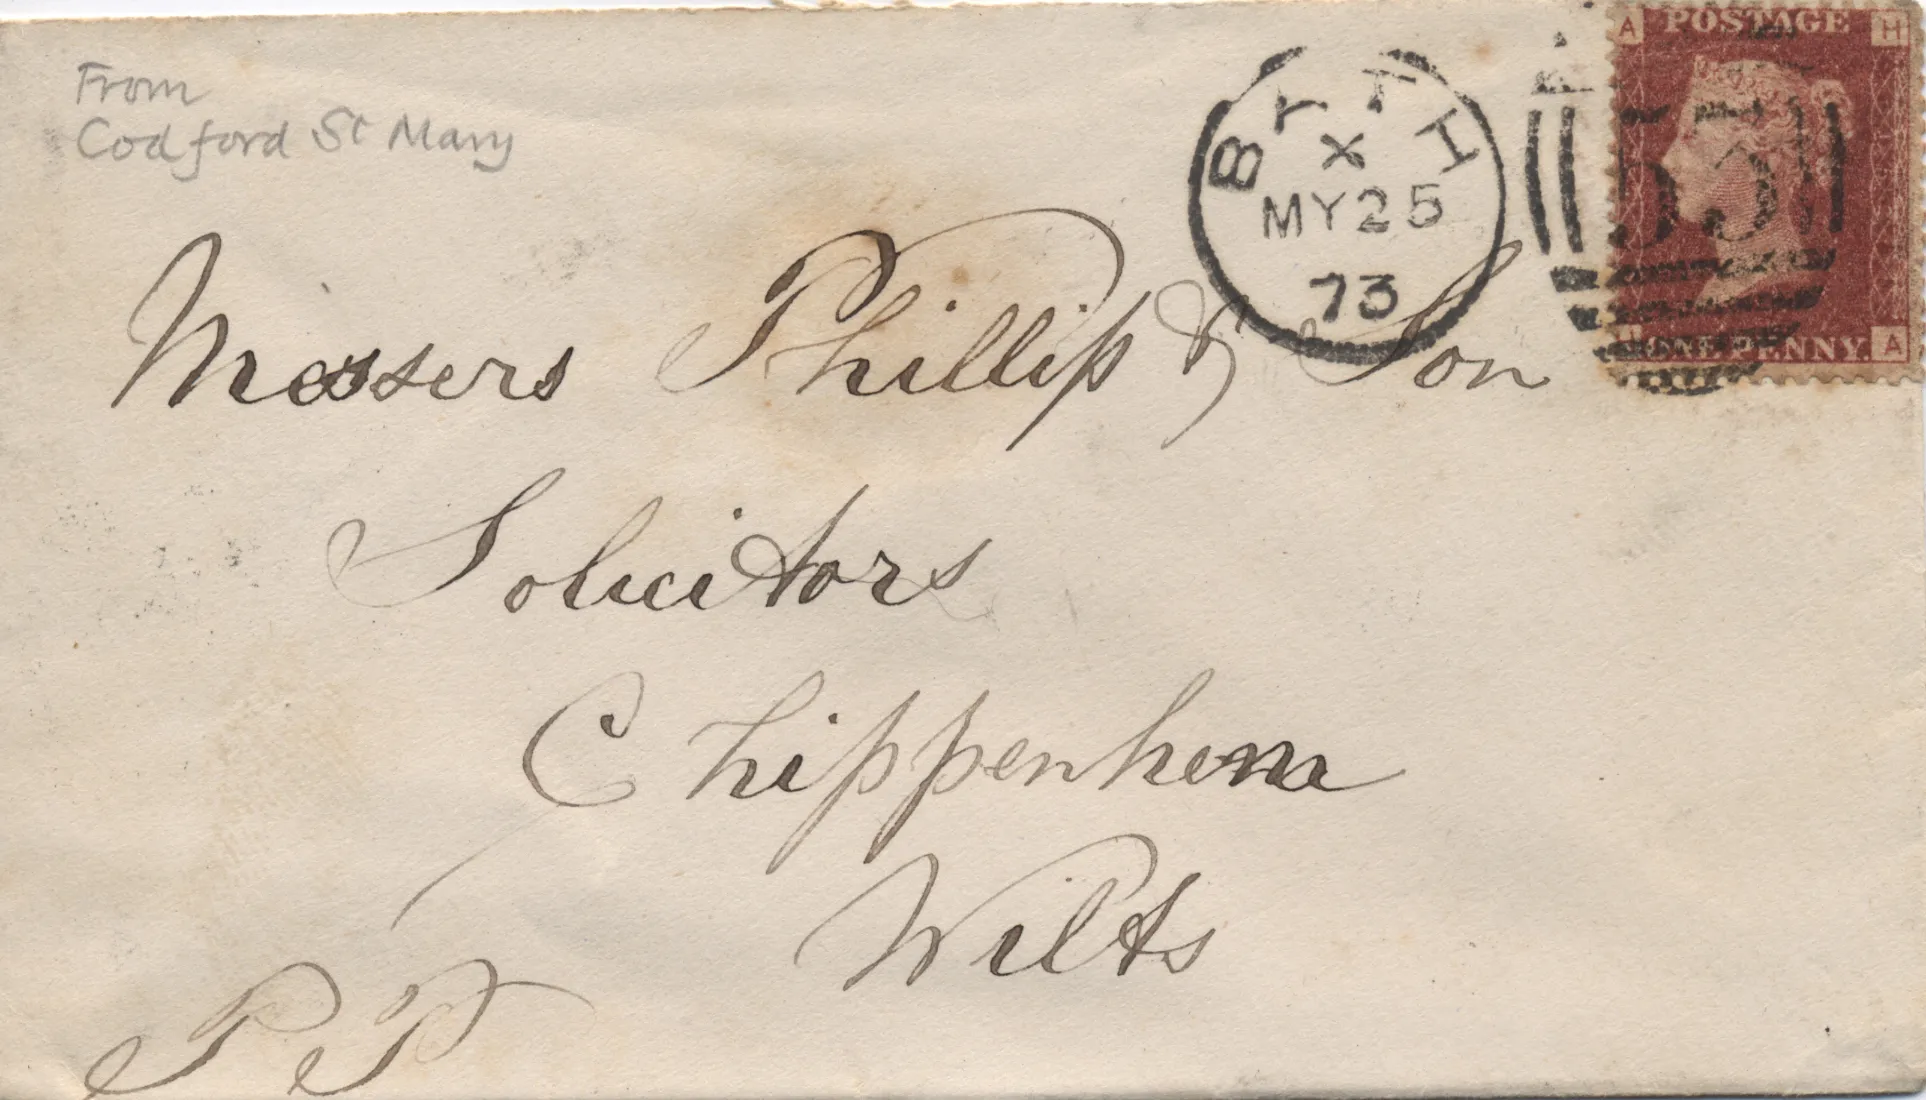 From
Codford St Mary
BATH
X
MY 25
73
A POSTAGE H
53
H ONE PENNY. A
Messers Phillip & Son
Solicitors
Chippenham
Wilts
P P